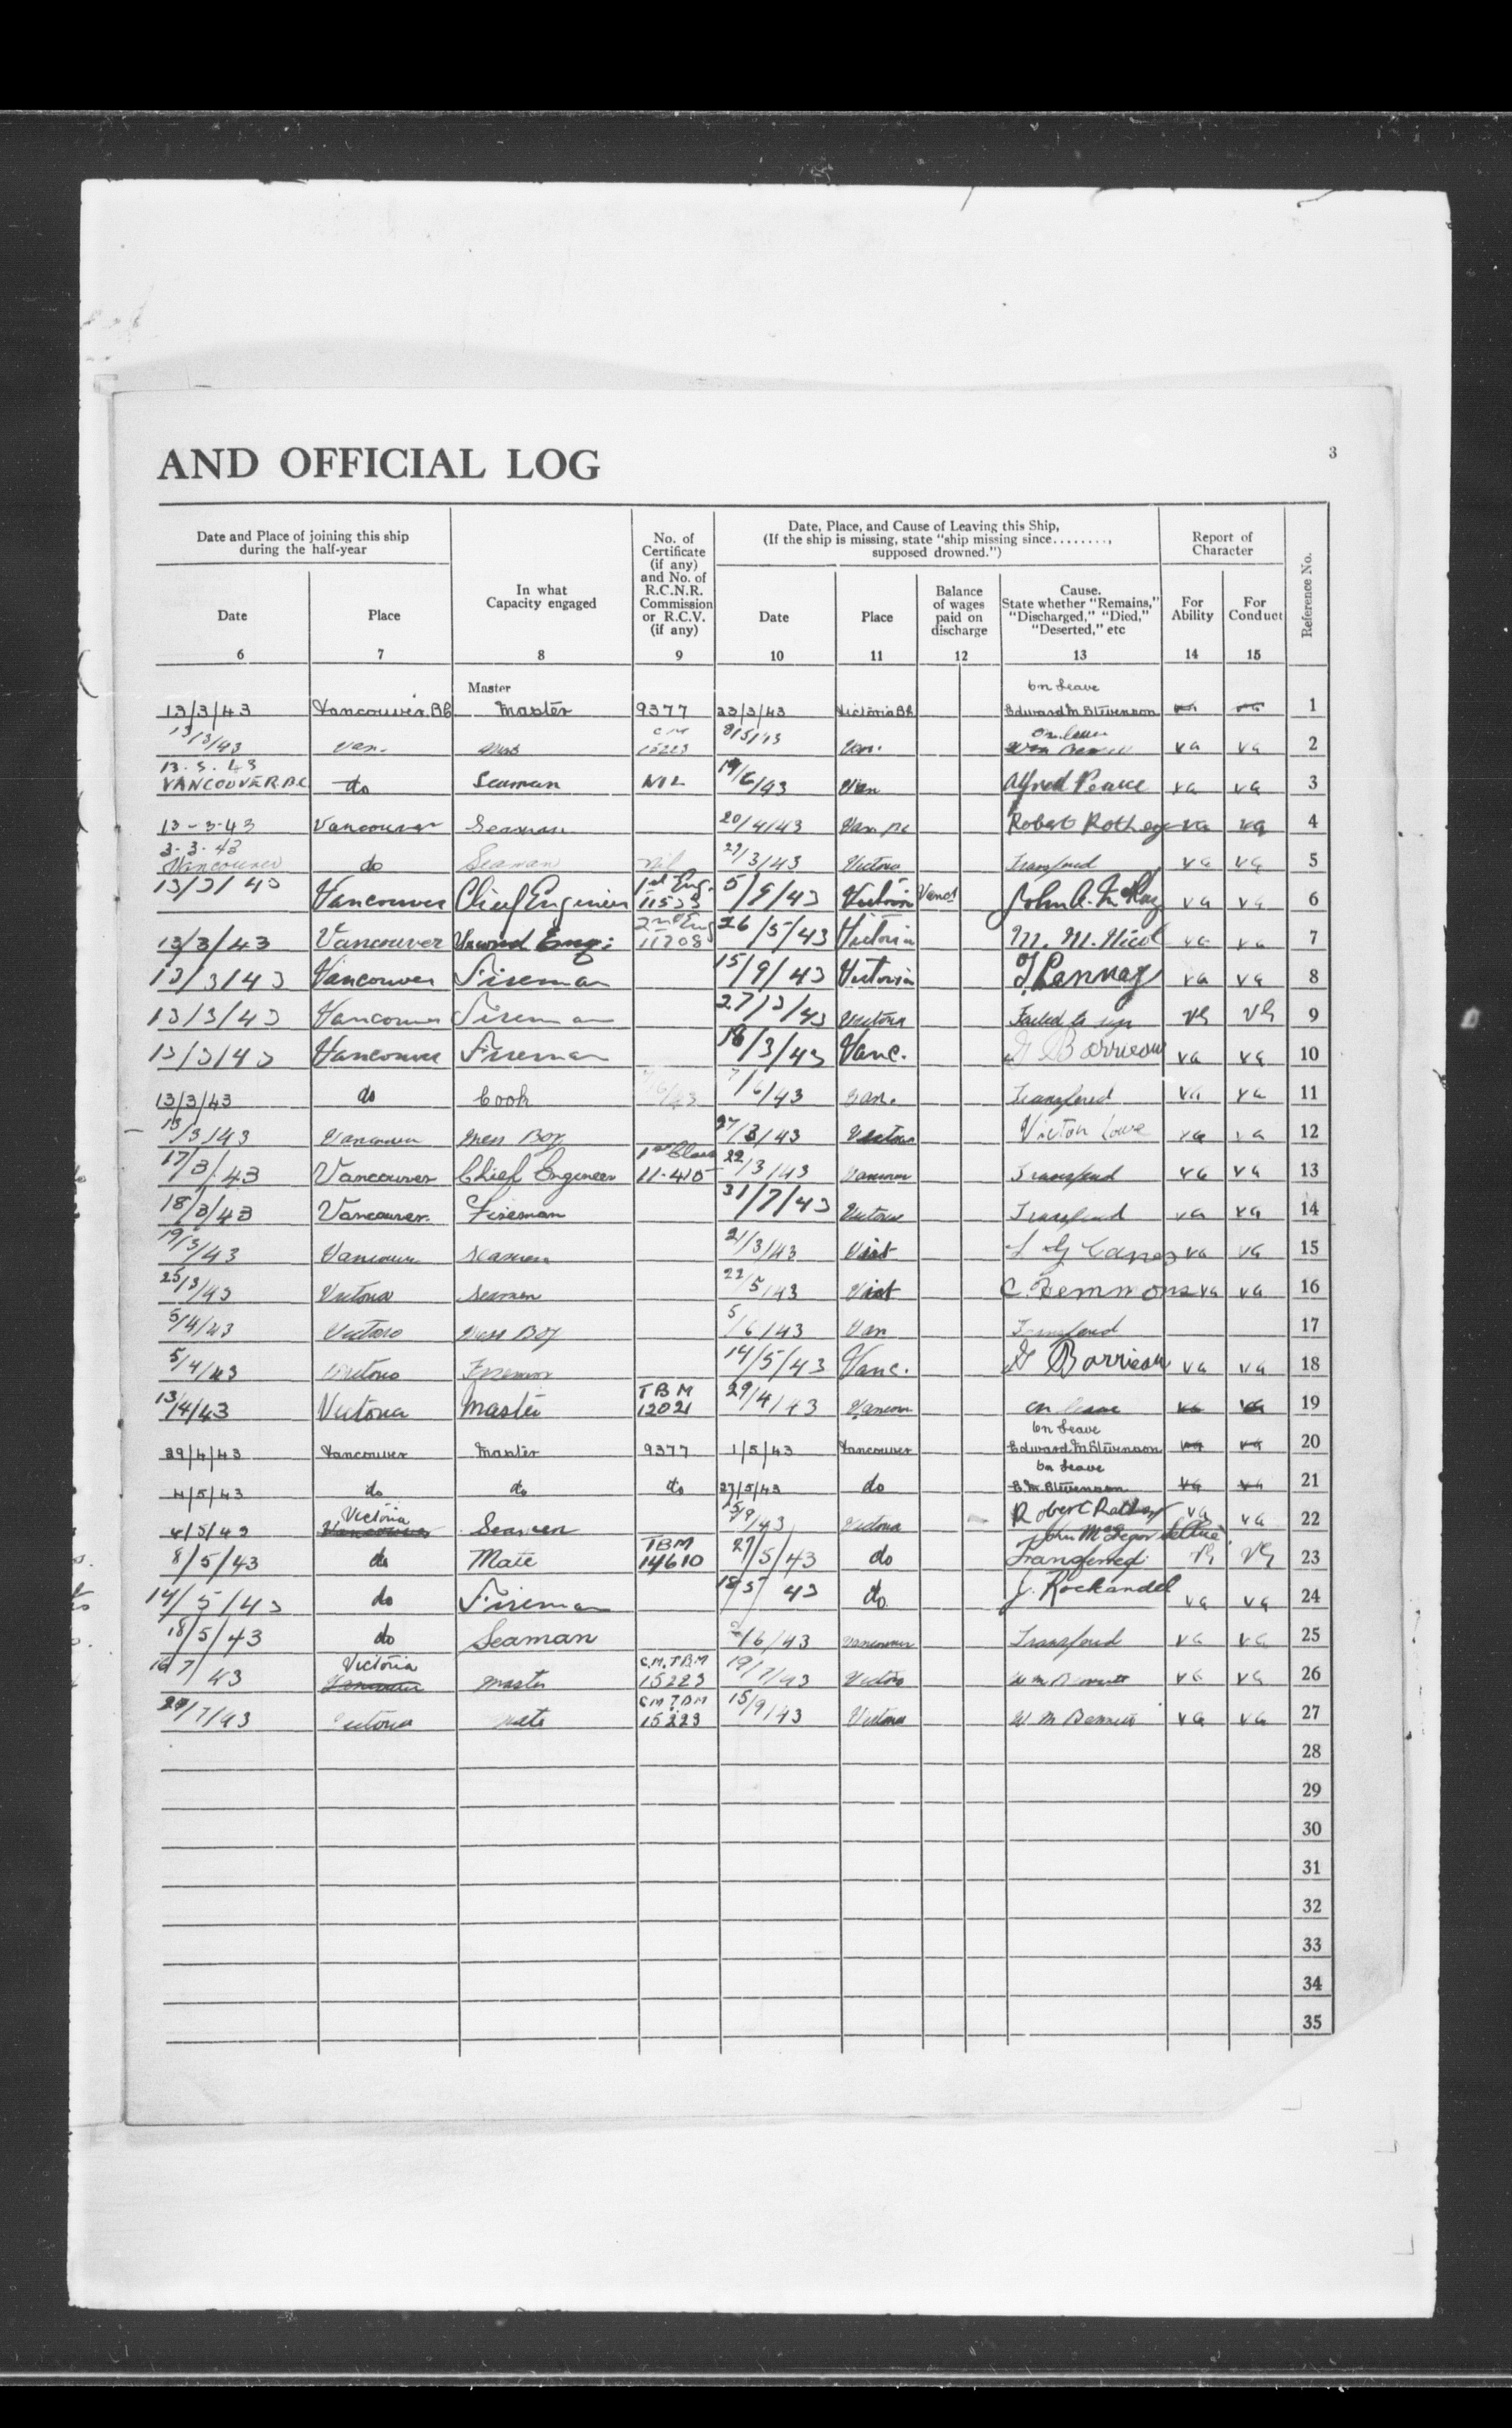 AND OFFICIAL LOG
3
Date and Place of joining this ship
during the half-year
In what
Capacity engaged
No. of
Certificate
(if any)
and No. of
R.C.N.R.
Commission
or R.C.V.
(if any)
Date, Place, and Cause of Leaving this Ship,
(If the ship is missing, state "ship missing since........,
supposed drowned.")
Report of
Character
Reference No.
Date
Place
Date
Place
Balance
of wages
paid on
discharge
Cause.
State whether "Remains,"
"Discharged," "Died,"
"Deserted," etc
For
Ability
For
Conduct
6 7 8 9 10 11 12 13 14 15
Master
on leave
13/3/43 Vancouver. BC Master 9377 23/3/43 Victoria BC Edward M Stevenson 1
13/3/43 Van. CM 15223 8/5/43 Van. on leave VG VG 2
13.3.43
VANCOUVER BC do Seaman NIL 19/6/43 Van Alfred Pearce VG VG 3
13-3-43 Vancouver Seaman 20/4/43 Van BC Robert Rothery VG VG 4
3-3-43
Vancouver do Seaman Nil 27/3/43 Victoria Transferred VG VG 5
13/3/43 Vancouver Chief Engineer 1st Eng. 11533 5/8/43 Victoria John A. McKay VG VG 6
13/3/43 Vancouver Second Eng: 2nd Eng 11708 26/5/43 Victoria M. M. Nicol VG VG 7
13/3/43 Vancouver Fireman 15/9/43 Victoria VG VG 8
13/3/43 Vancouver Fireman 27/3/43 Victoria Failed to sign VG VG 9
13/3/43 Vancouver Fireman 18/3/43 Vanc. G Barrieau VG VG 10
13/3/43 do Cook 7/6/43 Van. Transfered VG VG 11
13/3/43 Vancouver Mess Boy 27/3/43 Victoria Victor Lowe VG VG 12
17/3/43 Vancouver Chief Engineer 1st Class 11-410 22/3/43 Vancouver Transfered VG VG 13
18/3/43 Vancouver. Fireman 31/7/43 Victoria Transfered VG VG 14
19/3/43 Vancouver Seaman 21/3/43 Vict VG VG 15
25/3/43 Victoria Seaman 22/5/43 Vict C. Zemmons VG VG 16
5/4/43 Victoria Mess Boy 5/6/43 Van Transfered 17
5/4/43 Victoria Fireman 14/5/43 Vanc. G Barrieau VG VG 18
13/4/43 Victoria Master TBM 12021 29/4/43 Vancouver on leave VG VG 19
on leave
29/4/43 Vancouver Master 9377 1/5/43 Vancouver Edward M Stevenson VG VG 20
on leave
4/5/43 do do do 27/5/43 do E M Stevenson VG VG 21
Victoria
4/5/43 Vancouver Seaman 15/9/43 Victoria Robert Rothery VG VG 22
8/5/43 do Mate TBM 14610 27/5/43 do Transferred VG VG 23
14/5/43 do Fireman 18/5/43 do J. Rockandel VG VG 24
18/5/43 do Seaman 2/6/43 Vancouver Transfered VG VG 25
Victoria
16/7/43 Vancouver Master C.M.TBM 15223 19/7/43 Victoria Wm Bennett VG VG 26
20/7/43 Victoria Mate CM TBM 15223 15/9/43 Victoria W M Bennett VG VG 27
28
29
30
31
32
33
34
35